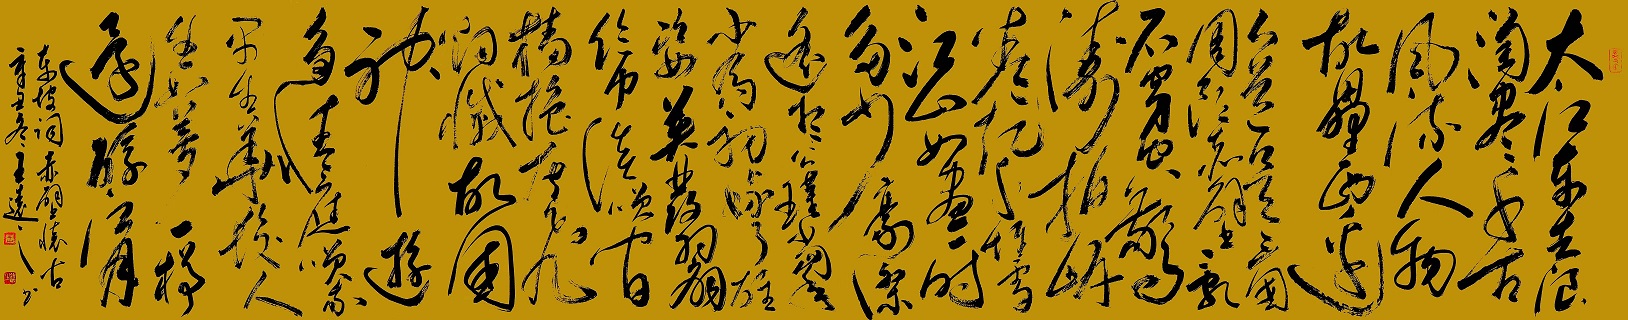 大江东去浪
淘尽千古
风流人物
故壘西边
人道是三國
周郎赤壁乱
石穿空惊
涛拍岸
卷起千堆雪
江山如畫一时
多少豪傑
遥想公瑾当年
小乔初嫁了雄
姿英發羽扇
纶巾谈笑间
樯橹灰飞
烟滅故國
神遊
多情应笑我
早生華发人
生如夢一樽
還酹江月
东坡词赤壁怀古
辛丑冬王遠